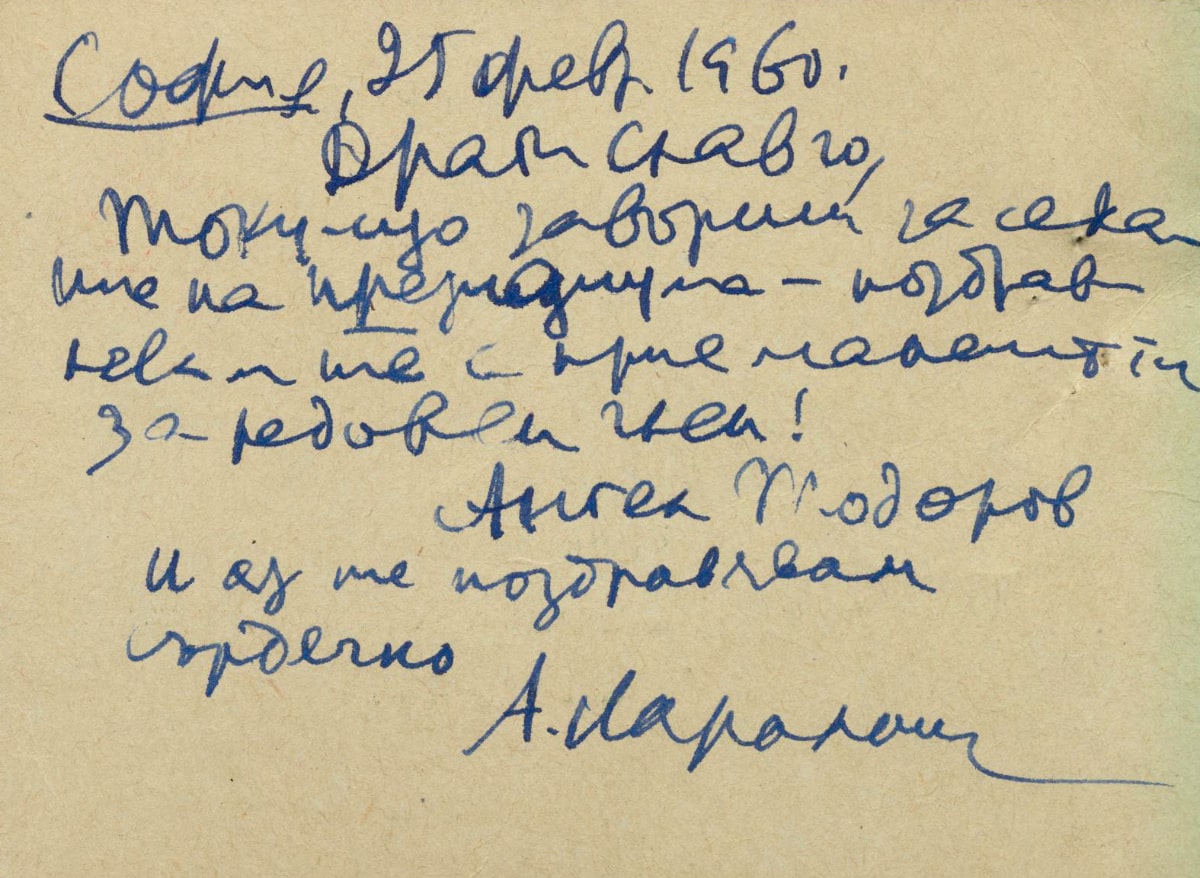 София, 25 февр. 1960.
Драги Славчо,
Току-що завърши заседа
ние на президиума – поздрав
лявам те с приемането ти
за редовен член!
Ангел Тодоров
И аз те поздравявам
сърдечно
А. Каралийч